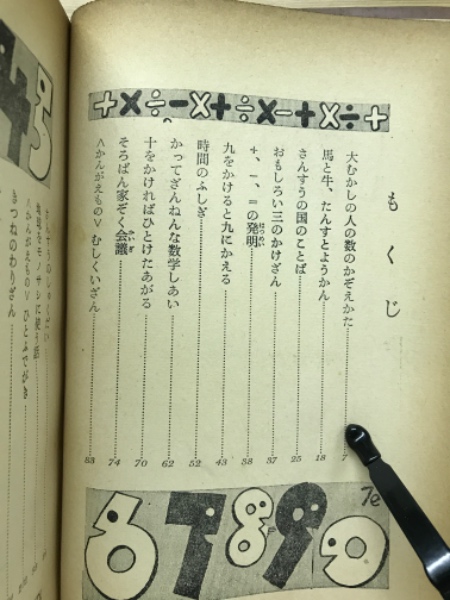 +×÷-×+÷×-+×÷+
もくじ
大むかしの人の数のかぞえかた 7
馬と牛、たんすとようかん 18
さんすうの国のことば 25
おもしろい三のかけざん 37
+、-、=の発明 38
九をかけると九にかえる 43
時間のふしぎ 52
かってざんねんな数学しあい 62
十をかければひとけたあがる 70
そろばん家ぞく会議 74
<かんがえもの> むしくいざん 83
67890
地球をモノサシに使う話
<かんがえもの> ひとふでがき
きつねのわりざん
45